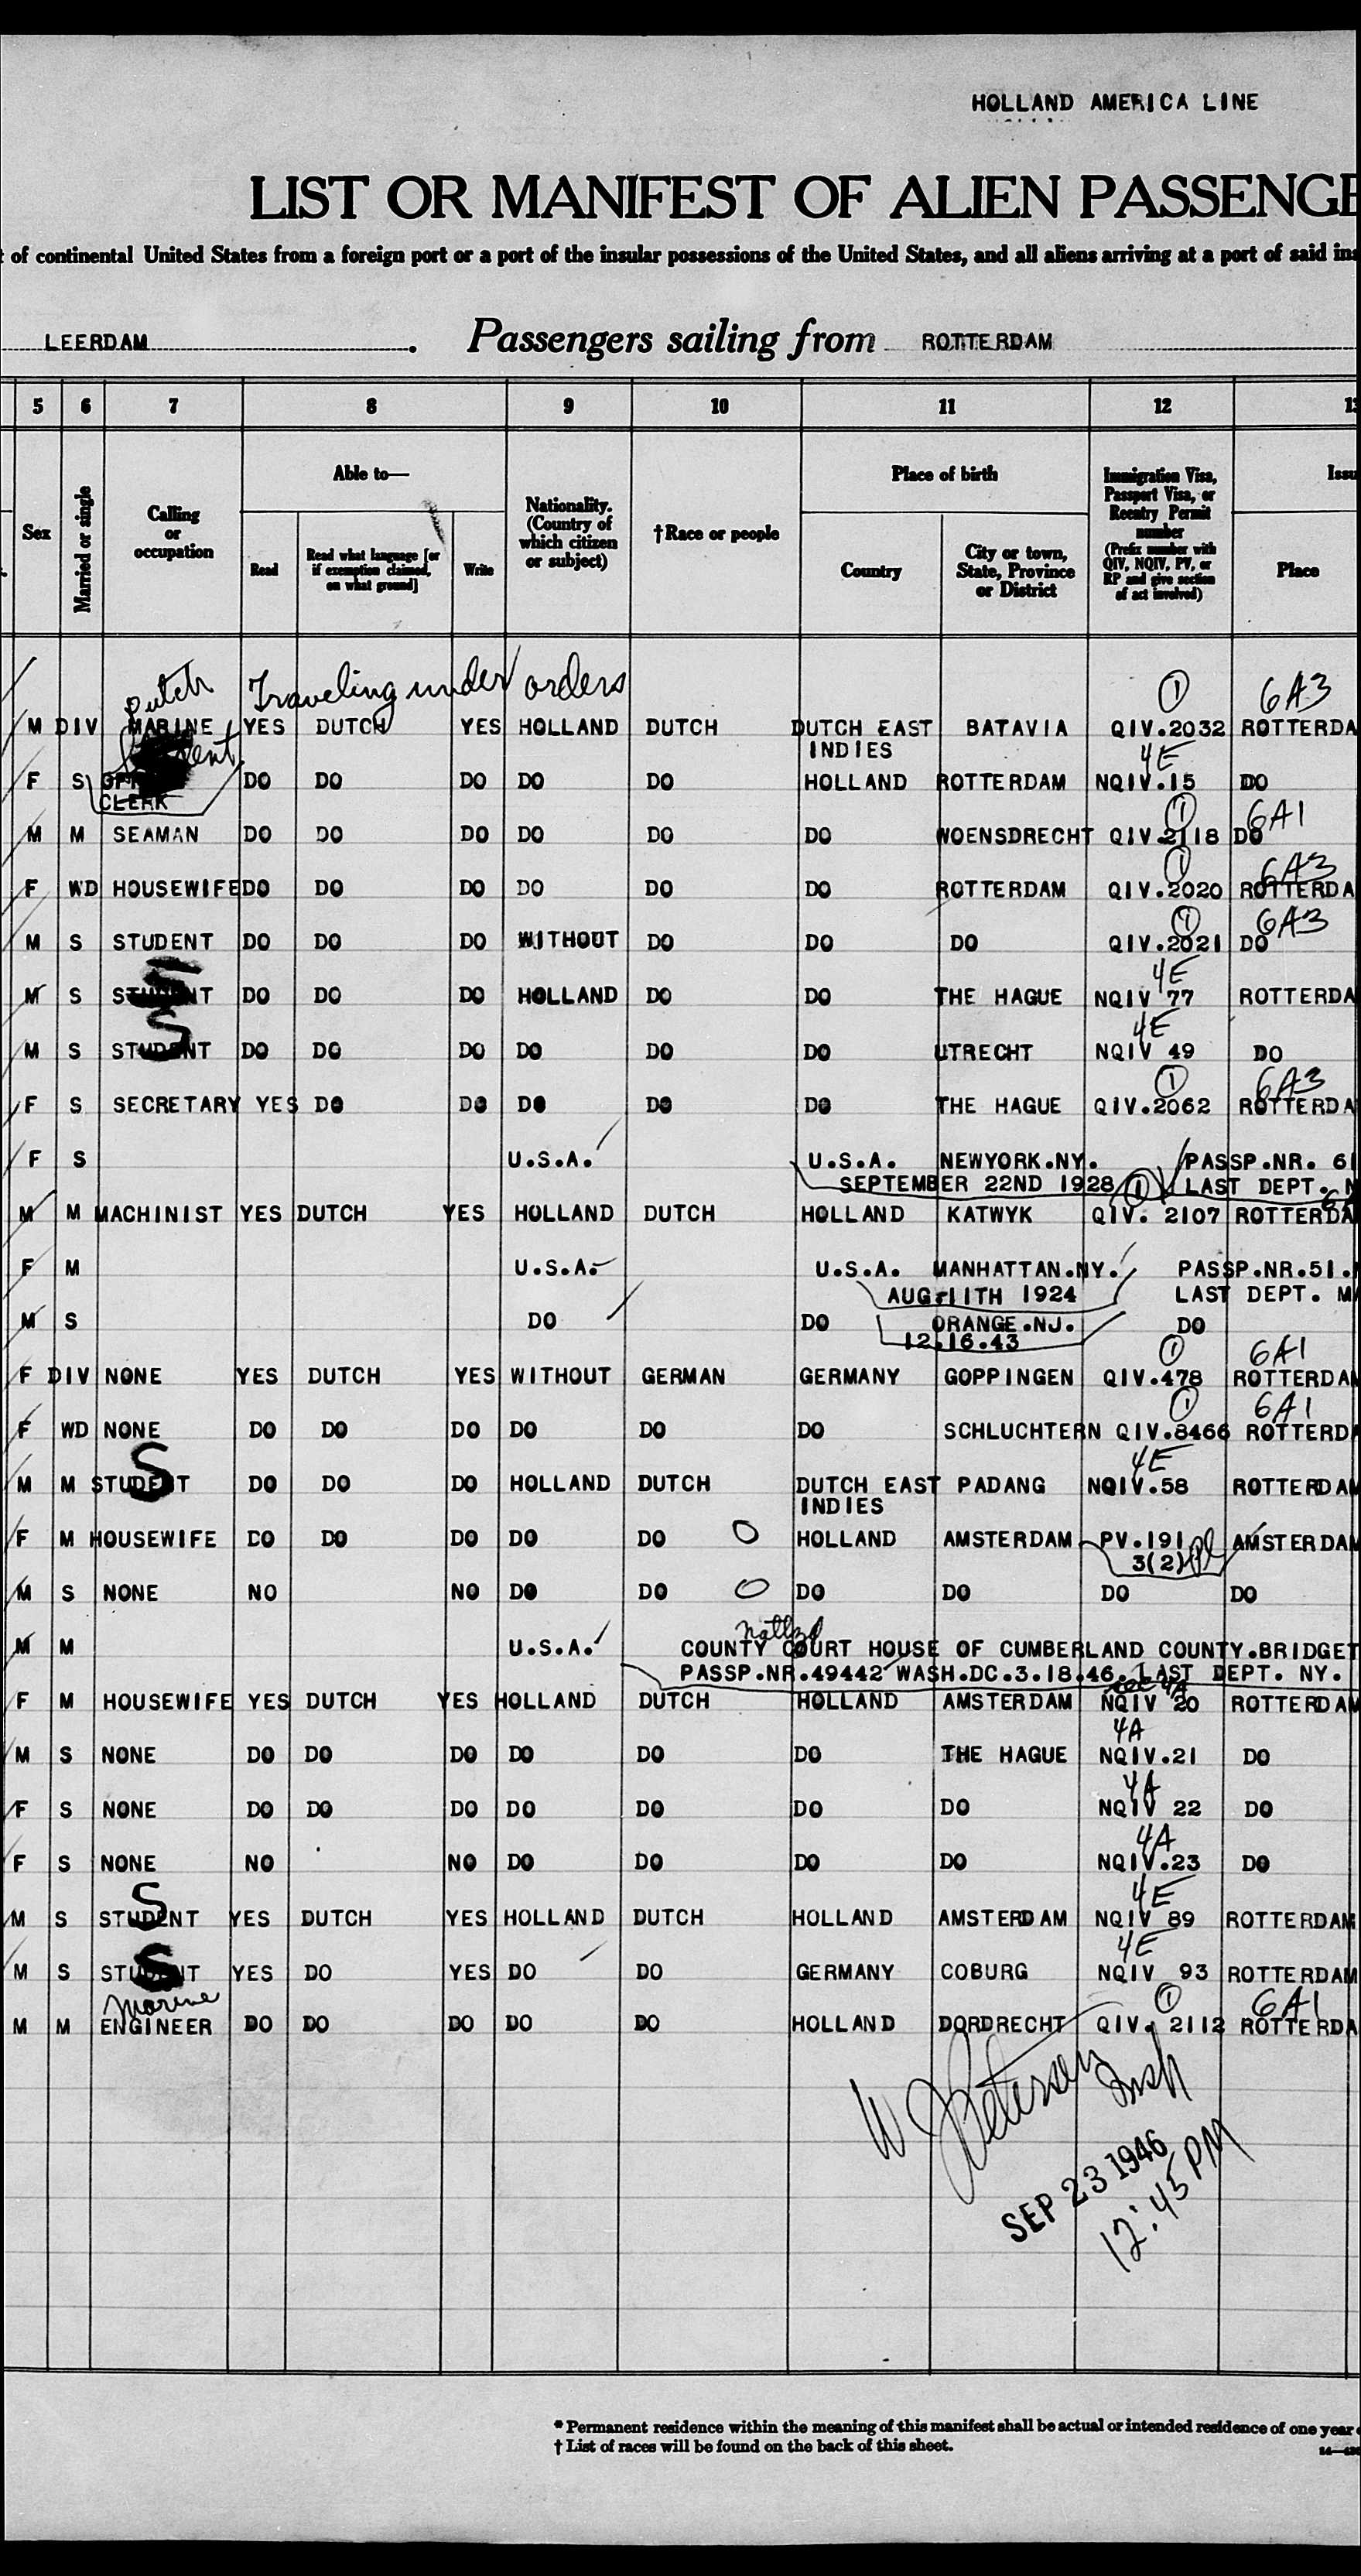 HOLLAND AMERICA LINE
LIST OR MANIFEST OF ALIEN PASSENGE
of continental United States from a foreign port or a port of the insular possessions of the United States, and all aliens arriving at a port of said ins
LEERDAM. Passengers sailing from ROTTERDAM
5 6 7 8 9 10 11 12 13
Sex Married or single Calling or occupation Able to— Read Read what language [or if exemption claimed, on what ground] Write Nationality. (Country of which citizen or subject) †Race or people Place of birth Country City or town, State, Province or District Immigration Visa, Passport Visa, or Reentry Permit number (Prefix number with QIV, NQIV, PV, or RP and give section of act involved) Issu Place
Dutch Traveling under orders 1 6A3
M DIV MARINE YES DUTCH YES HOLLAND DUTCH DUTCH EAST INDIES BATAVIA QIV.2032 ROTTERDA
4E
F S CLERK DO DO DO DO DO HOLLAND ROTTERDAM NQIV.15 DO
1 6A1
M M SEAMAN DO DO DO DO DO DO WOENSDRECHT QIV.2118 DO
1 6A3
F WD HOUSEWIFE DO DO DO DO DO DO ROTTERDAM QIV.2020 ROTTERDA
1 6A3
M S STUDENT DO DO DO WITHOUT DO DO DO QIV.2021 DO
S 4E
M S STUDENT DO DO DO HOLLAND DO DO THE HAGUE NQIV 77 ROTTERDA
S 4E
M S STUDENT DO DO DO DO DO DO UTRECHT NQIV 49 DO
1 6A3
F S SECRETARY YES DO DO DO DO DO THE HAGUE QIV.2062 ROTTERDA
F S U.S.A. U.S.A. NEWYORK.NY. PASSP.NR. 61
SEPTEMBER 22ND 1928 1 LAST DEPT. N
M M MACHINIST YES DUTCH YES HOLLAND DUTCH HOLLAND KATWYK QIV. 2107 ROTTERDA
F M U.S.A. U.S.A. MANHATTAN.NY. PASSP.NR.51.
AUG.11TH 1924 LAST DEPT. M
M S DO DO ORANGE.NJ. DO
12.16.43
1 6A1
F DIV NONE YES DUTCH YES WITHOUT GERMAN GERMANY GOPPINGEN QIV.478 ROTTERDAM
1 6A1
F WD NONE DO DO DO DO DO DO SCHLUCHTERN QIV.8466 ROTTERD
S 4E
M M STUDENT DO DO DO HOLLAND DUTCH DUTCH EAST INDIES PADANG NQIV.58 ROTTERDAM
F M HOUSEWIFE DO DO DO DO DO O HOLLAND AMSTERDAM PV.191 AMSTERDAM
3(2)
M S NONE NO NO DO DO O DO DO DO DO
natlzd
M M U.S.A. COUNTY COURT HOUSE OF CUMBERLAND COUNTY.BRIDGET
PASSP.NR.49442 WASH.DC.3.18.46. LAST DEPT. NY.
4A
F M HOUSEWIFE YES DUTCH YES HOLLAND DUTCH HOLLAND AMSTERDAM NQIV 20 ROTTERDAM
4A
M S NONE DO DO DO DO DO DO THE HAGUE NQIV.21 DO
4A
F S NONE DO DO DO DO DO DO DO NQIV 22 DO
4A
F S NONE NO NO DO DO DO DO NQIV.23 DO
S 4E
M S STUDENT YES DUTCH YES HOLLAND DUTCH HOLLAND AMSTERDAM NQIV 89 ROTTERDAM
S 4E
M S STUDENT YES DO YES DO DO GERMANY COBURG NQIV 93 ROTTERDAM
marine 1 6A1
M M ENGINEER DO DO DO DO DO HOLLAND DORDRECHT QIV. 2112 ROTTERDA
W J Peterson
Insp
SEP 23 1946
12:45 PM
* Permanent residence within the meaning of this manifest shall be actual or intended residence of one year
† List of races will be found on the back of this sheet.